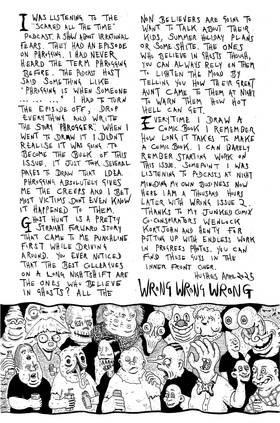 I WAS LISTENING TO THE
"SCARED ALL THE TIME"
PODCAST. A SHOW ABOUT IRRATIONAL
FEARS. THEY HAD AN EPISODE
ON PHROGGING. I HAD NEVER
HEARD THE TERM PHROGGING
BEFORE. THE PODCAST HOST
SAID SOMETHING LIKE
'PHROGGING IS WHEN SOMEONE
... ... ... ... I HAD TO TURN
THE EPISODE OFF, DROP
EVERYTHING AND WRITE
THE STORY PHROGGER. WHEN I
WENT TO DRAW IT I DIDN'T
REALISE IT WAS GOING TO
BECOME THE BULK OF THIS
ISSUE, IT JUST TOOK SEVERAL
PAGES TO DRAW THAT IDEA.
PHROGGING ABSOLUTELY GIVES
ME THE CREEPS AND I BET,
MOST VICTIMS DON'T EVEN KNOW
IT HAPPEND TO THEM.
GHOST HUNT IS A PRETTY
STRAIGHT FORWARD STORY
THAT CAME TO ME PUNCHLINE
FIRST WHILE DRIVING
AROUND. YOU EVER NOTICED
THAT THE BEST COLLEAGUES
ON A LONG NIGHTSHIFT ARE
THE ONES WHO BELIEVE
IN GHOSTS? ALL THE
NON BELIEVERS ARE GOING TO
WANT TO TALK ABOUT THEIR
KIDS, SUMMER HOLIDAY PLANS
OR SOME SHITE. THE ONES
WHO BELIEVE IN GHOSTS THOUGH,
YOU CAN ALWAYS RELY ON THEM
TO LIGHTEN THE MOOD BY
TELLING YOU HOW THEIR GREAT
AUNT CAME TO THEM AT NIGHT
TO WARN THEM HOW HOT
HELL CAN GET.
EVERYTIME I DRAW A
COMIC BOOK I REMEMBER
HOW LONG IT TAKES TO MAKE
A COMIC BOOK. I CAN BARELY
REMBER STARTING WORK ON
THIS ISSUE. SOMEPOINT I WAS
LISTENING TO PODCASTS AT NIGHT
MINDING MY OWN BUSINESS NOW
HERE I AM A THOUSAND YEARS
LATER WITH WRONG ISSUE 2.
THANKS TO MY JUNKED COMIX
CO-CONSPIRATORS WENLOCK
KORTJOHN AND HENTY FOR
PUTTING UP WITH ENDLESS WORK
IN PROGRESS PHOTOS. YOU CAN
FIND THESE GUYS IN THE
INNER FRONT COVER.
HUGHES APRIL 2025
WRONG WRONG WRONG